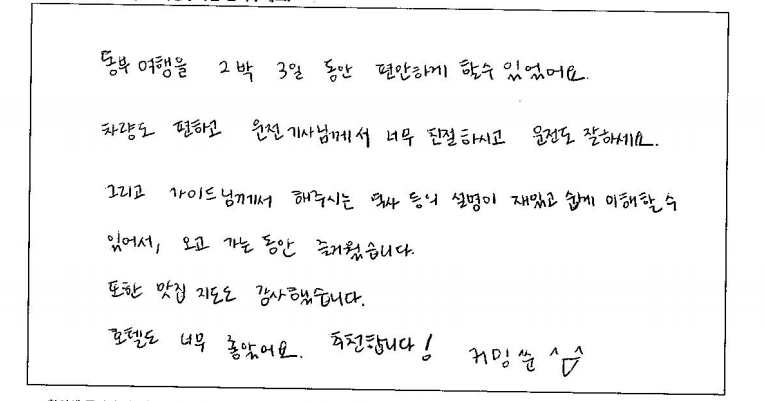 동부 여행을 2박 3일 동안 편안하게 할수 있었어요.
차량도 편하고 운전기사님께서 너무 친절하시고 운전도 잘하세요.
그리고 가이드님께서 해주시는 역사 등의 설명이 재밌고 쉽게 이해할 수
있어서, 오고 가는 동안 즐거웠습니다.
또한 맛집 지도도 감사했습니다.
호텔도 너무 좋았어요. 추천합니다! 커밍쑨 ^^